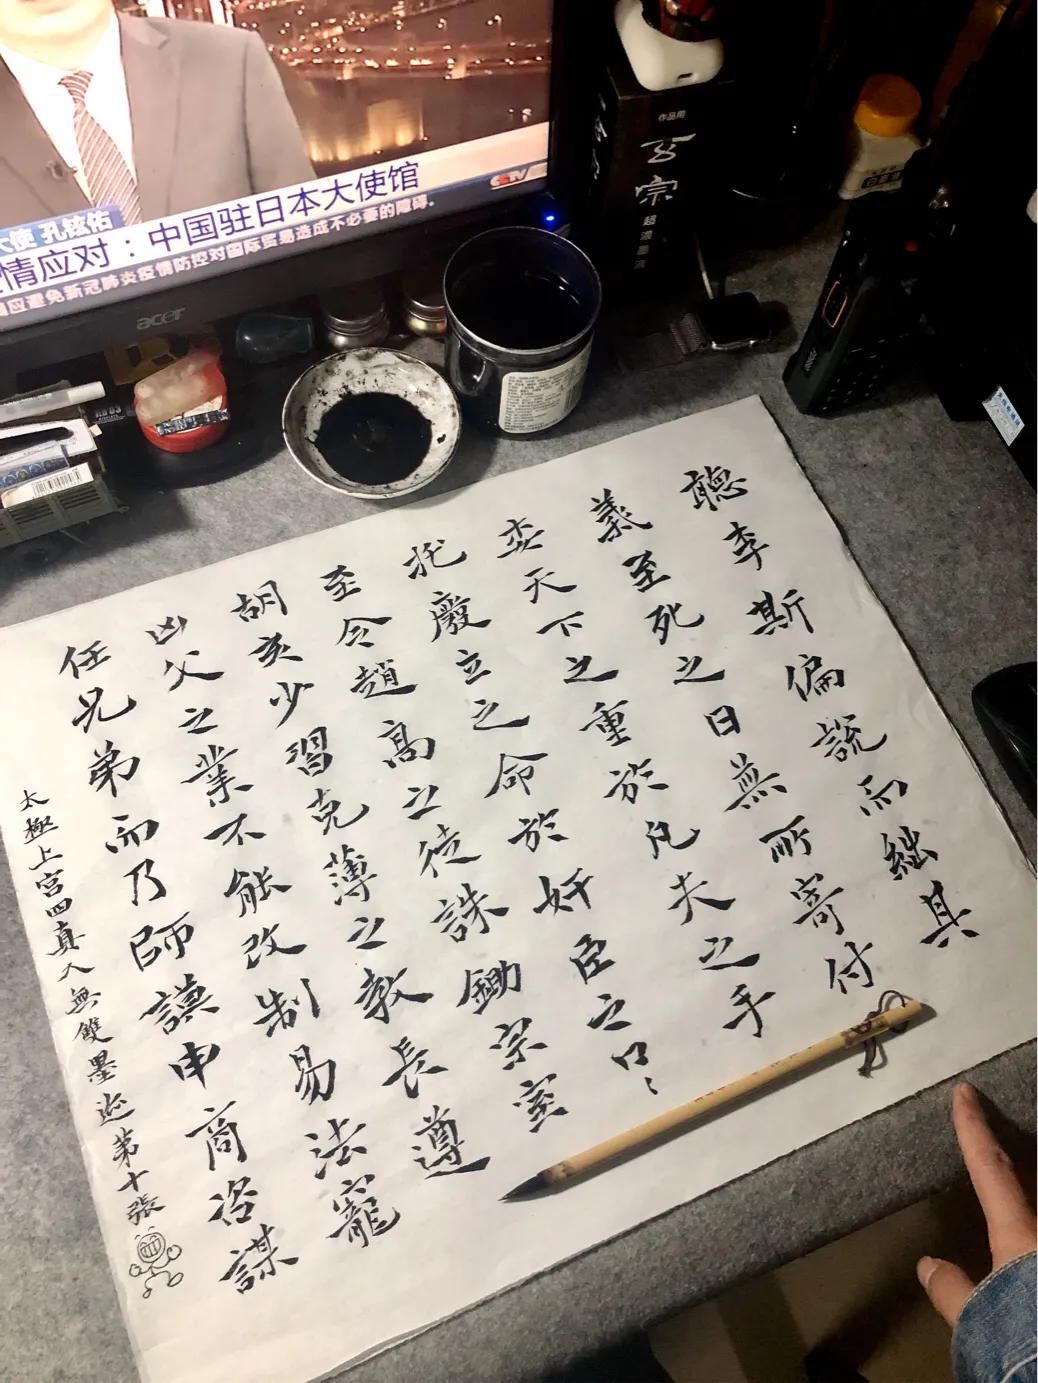 大使 孔铉佑
情应对：中国驻日本大使馆
应避免新冠肺炎疫情防控对国际贸易造成不必要的障碍。
CCTV
acer
作品用
玄宗
聽李斯偏說而絀其
義至死之日無所寄付
委天下之重於凡夫之手
托廢立之命於奸臣之口
至令趙高之徒誅鋤宗室
胡亥少習克薄之教長遵
凶父之業不能改制易法寵
任兄弟而乃師謨申商咨謀
太極上宮四真人無雙墨迹第十張